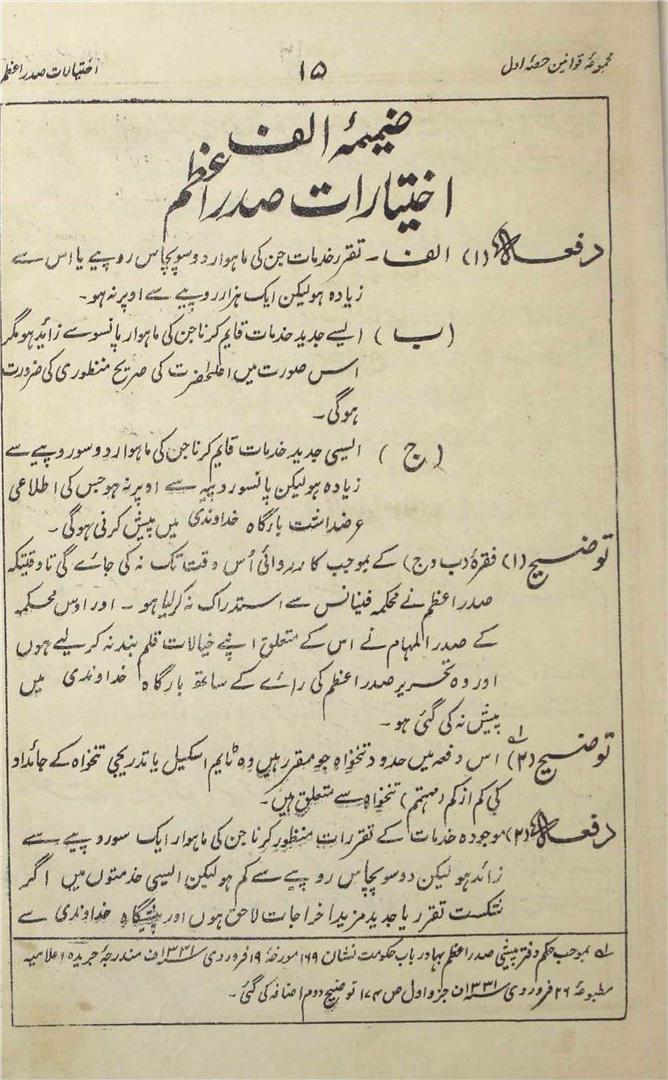 مجموعۂ قوانین حصۂ اول
۱۵
اختیارات صدر اعظم
ضمیمۂ الف
اختیارات صدر اعظم
دفعہ (۱) الف ۔ تقرر خدمات جن کی ماہوار دو سو پچاس روپیے یا اس سے
زیادہ ہو لیکن ایک ہزار روپیے سے اوپر نہ ہو۔
(ب) ایسے جدید خدمات قایم کرنا جن کی ماہوار پانسو سے زائد ہو مگر
اس صورت میں اعلحضرت کی صریح منظوری کی ضرورت
ہوگی۔
(ج) ایسی جدید خدمات قایم کرنا جن کی ماہوار دو سو روپیے سے
زیادہ ہو لیکن پانسو روپیہ سے اوپر نہ ہو جس کی اطلاعی
عرضداشت بارگاہ خداوندی میں پیش کرنی ہوگی۔
توضیح (۱) فقرۂ (ب وج) کے بموجب کارروائی اُس وقت تک نہ کی جائے گی تاوقتیکہ
صدر اعظم نے محکمہ فینانس سے استدراک نہ کرلیا ہو ۔ اور اوس محکمہ
کے صدر المہام نے اس کے متعلق اپنے خیالات قلم بند نہ کر لیے ہوں
اور وہ تحریر صدر اعظم کی رائے کے ساتھ بارگاہ خداوندی میں
پیش نہ کی گئی ہو۔
توضیح (۲) ؎۱ اس دفعہ میں حدود تنخواہ جو مقرر ہیں وہ ٹایم اسکیل یا تدریجی تنخواہ کے جائداد
کی کم از کم (منہتم) تنخواہ سے متعلق ہیں۔
دفعہ (۲) موجودہ خدمات کے تقررات منظور کرنا جن کی ماہوار ایک سو روپیے سے
زائد ہو لیکن دو سو پچاس روپیے سے کم ہو لیکن ایسی خدمتوں میں اگر
شکست تقرر یا جدید مزید اخراجات لاحق ہوں اور پیشگاہ خداوندی سے
؎۱ بموجب حکم دفتر پیشی صدر اعظم بہادر باب حکومت نشان ۱۶۹ مورخۂ ۱۹ فروردی ۱۳۳۱ف مندرجۂ جریدہ اعلامیہ
مطبوعۂ ۲۶ فروردی ۱۳۳۱ف جزو اول ص ۱۷۴ توضیح دوم اضافہ کی گئی۔